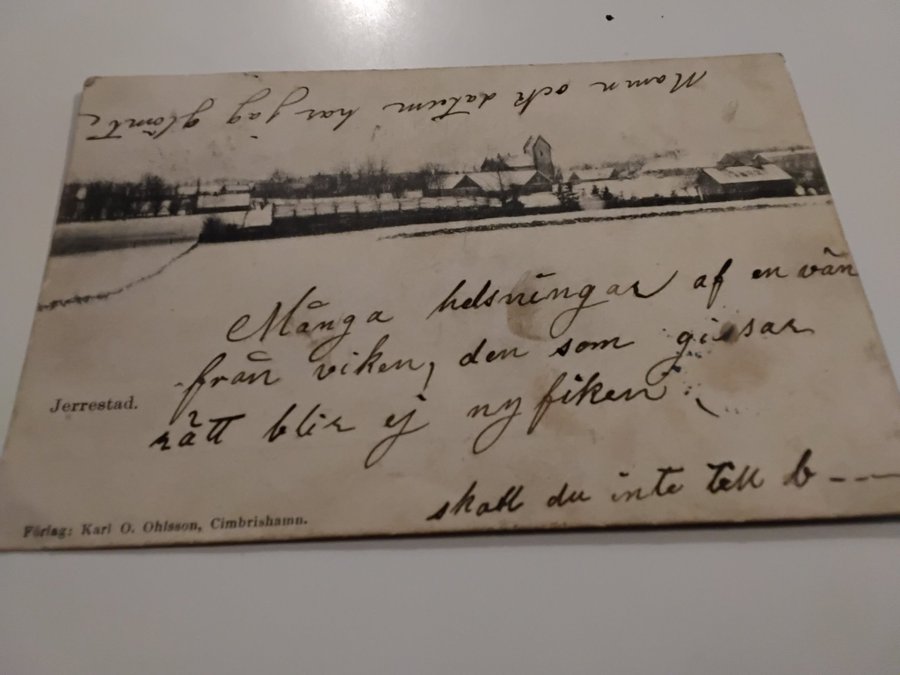 Namn och datum har jag glömt
Många helsningar af en vän
från viken, den som gissar
rätt blir ej nyfiken
Jerrestad.
skall du inte till b---
Förlag: Karl O. Ohlsson, Cimbrishamn.